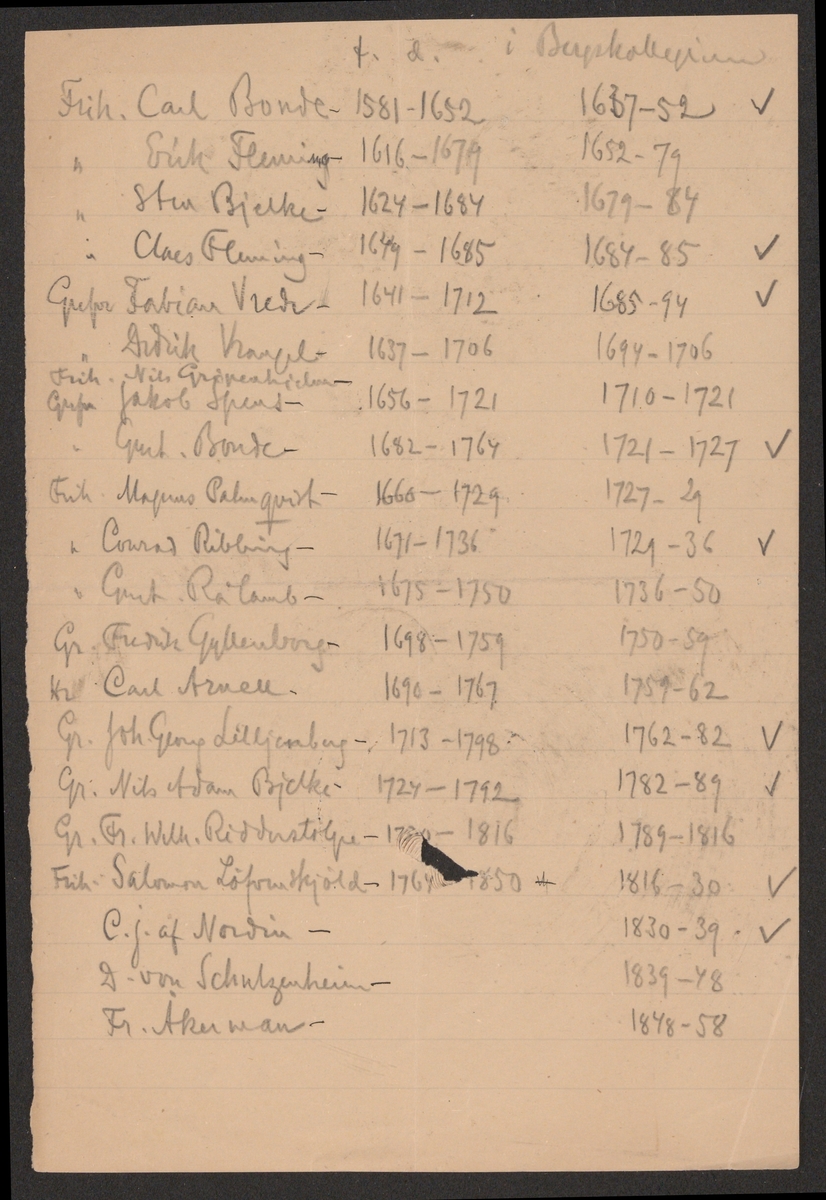 f. d. i Bergskollegium
Frih. Carl Bonde - 1581-1652 1637-52 ✓
" Erik Fleming - 1616-1679 1652-79
" Sten Bjelke - 1624-1684 1679-84
" Claes Fleming - 1649-1685 1684-85 ✓
Grefve Fabian Vrede - 1641-1712 1685-94 ✓
" Didrik Vrangel - 1637-1706 1694-1706
Frih. Nils Gripenhielm -
Grefve Jakob Spens - 1656-1721 1710-1721
" Gust. Bonde - 1682-1764 1721-1727 ✓
Frih. Magnus Palmqvist - 1660-1729 1727-29
" Conrad Ribbing - 1671-1736 1729-36 ✓
" Gust. Rålamb - 1675-1750 1736-50
Gr. Fredrik Gyllenborg - 1698-1759 1750-59
Hr Carl Arnell - 1690-1767 1759-62
Gr. Joh. Georg Lilljenberg - 1713-1798 1762-82 ✓
Gr. Nils Adam Bjelke - 1724-1792 1782-89 ✓
Gr. Fr. Wilh. Ridderstolpe - 1730-1816 1789-1816
Frih. Salomon Löfvenskjöld - 1764-1850 1816-30 ✓
C. J. af Nordin - 1830-39 ✓
D. von Schulzenheim - 1839-48
Fr. Åkerman - 1848-58